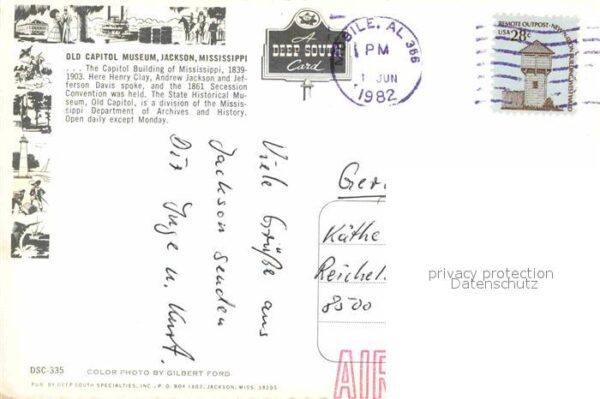 OLD CAPITOL MUSEUM, JACKSON, MISSISSIPPI
. . . The Capitol Building of Mississippi, 1839-
1903. Here Henry Clay, Andrew Jackson and Jef-
ferson Davis spoke, and the 1861 Secession
Convention was held. The State Historical Mu-
seum, Old Capitol, is a division of the Missis-
sippi Department of Archives and History.
Open daily except Monday.
A
DEEP SOUTH
Card
MOBILE, AL 366
PM
1 JUN
1982
REMOTE OUTPOST-NEW
USA 28c
Viele Grüße aus
Jackson senden
Dir Inge u. Kurt.
Ger
Käthe
Reichel
8500
privacy protection
Datenschutz
AIR
DSC-335
COLOR PHOTO BY GILBERT FORD
PUB. BY DEEP SOUTH SPECIALTIES, INC., P. O. BOX 1902, JACKSON, MISS. 39205